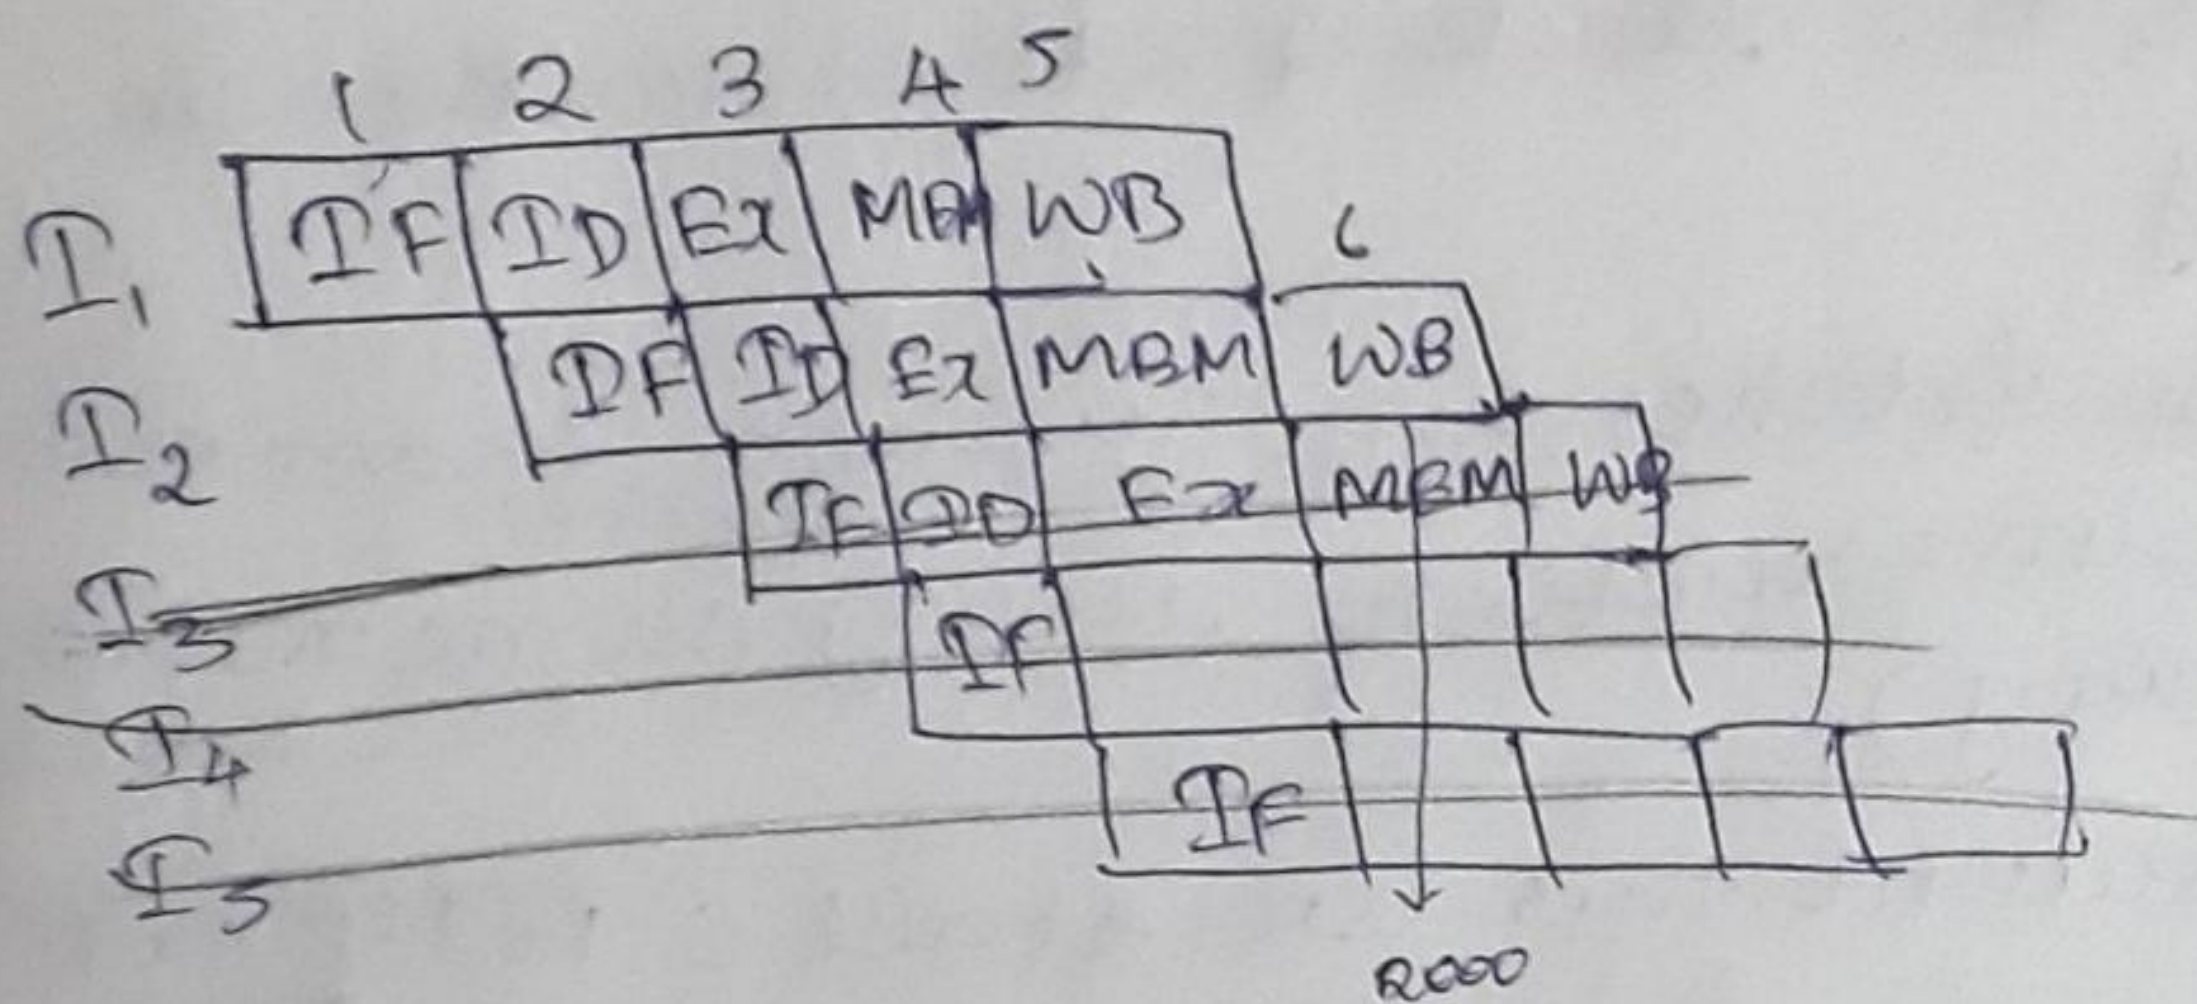 1 2 3 4 5
I1 IF ID Ex MEM WB 6
I2 IF ID Ex MEM WB
I3 IF ID Ex MEM WB
I4 IF
I5 IF
2000